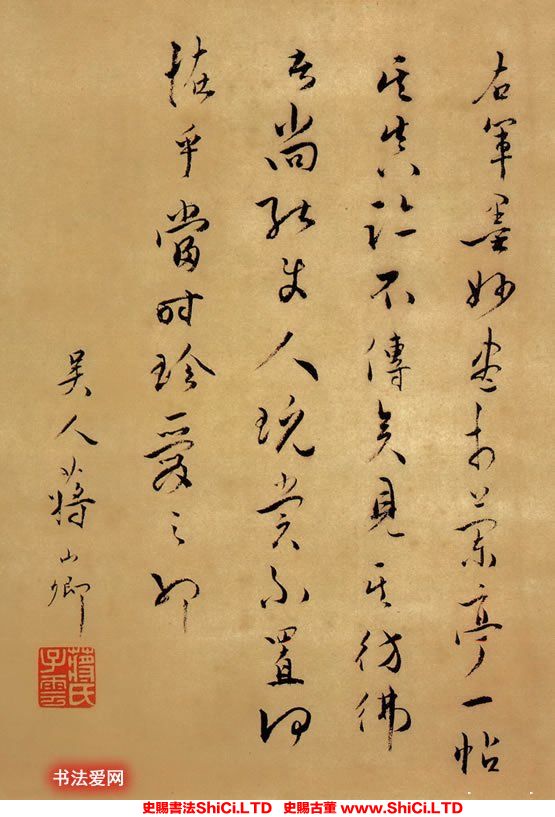 右軍墨妙盡於蘭亭一帖
其真跡不傳矣見其彷彿
者尚能使人玩賞不置何
怪乎當時珍愛之耶
吳人蔣山卿
蔣氏子雲
书法爱网
史賜書法ShiCi.LTD 史賜古董 www.ShiCi.LTD